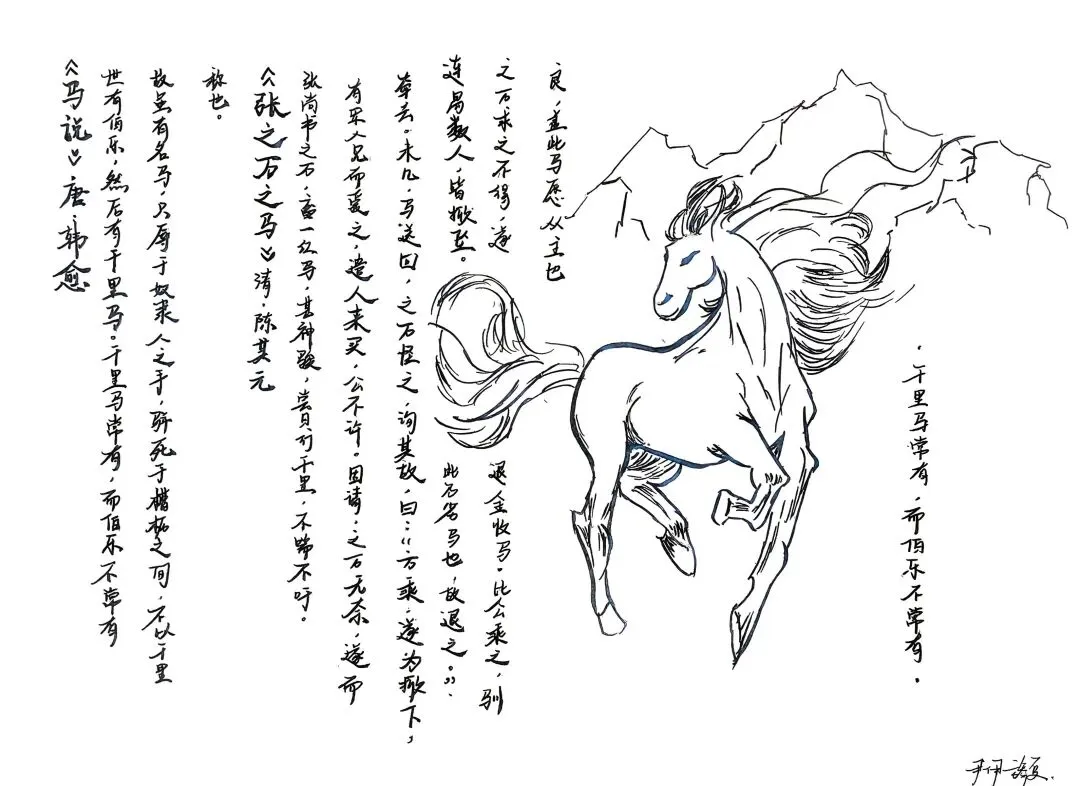 《马说》唐 韩愈
世有伯乐，然后有千里马。千里马常有，而伯乐不常有
故虽有名马，只辱于奴隶人之手，骈死于槽枥之间，不以千里
称也。
《张之万之马》清·陈其元
张尚书之万，畜一红马，甚神骏，尝日行千里，不喘不吁。
有军人见而爱之，遣人来买，公不许。固请，之万无奈，遂而
牵去。未几，马送回，之万怪之，询其故，曰：“方乘，遂为掀下，
连易数人，皆掀坠。
此乃劣马也，故退之。”
之万求之不得，遂
退金收马。比公乘之，驯
良，盖此马愿从主也
·千里马常有，而伯乐不常有。